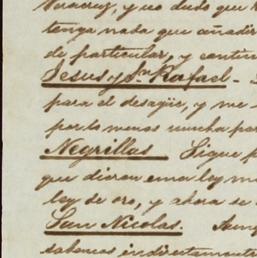 Veracruz, y no dudo que
tenga nada que añadir
de particular, y contin
Jesus y Sn. Rafael -
para el desagüe, y me
por lo menos mucha par
Negrillas Sigue p
que dieron ema ley m
ley de oro, y ahora se
San Nicolas.
sabemos indirectamente